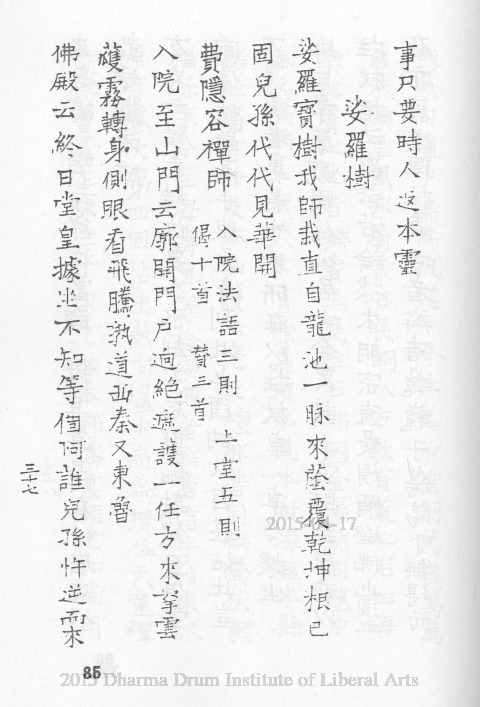 事只要時人返本靈
娑羅樹
娑羅寶樹我師栽直自龍池一脉來蔭覆乾坤根已
固兒孫代代見華開
費隱容禪師
入院法語三則 上堂五則
偈十首 贊三首
入院至山門云廓開門戶迥絕遮護一任方來拏雲
蒦霧轉身側眼看飛騰孰道西秦又東魯
佛殿云終日堂皇據坐不知等個阿誰兒孫忤逆而來
三十七
85
2015-04-17
2015 Dharma Drum Institute of Liberal Arts